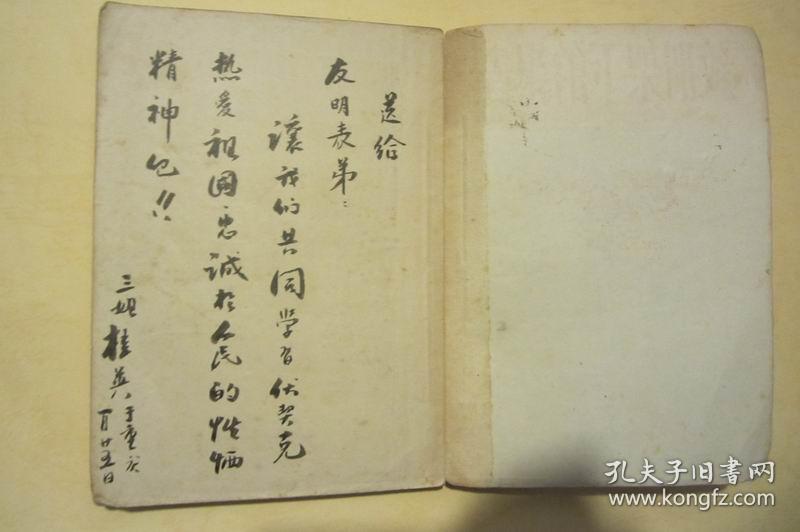 送给
友明表弟：
讓我们共同学習伏契克
熱爱祖國、忠诚於人民的性格
精神吧!!
三姐桂英于重庆
一月廿五日
孔夫子旧书网
www.kongfz.com